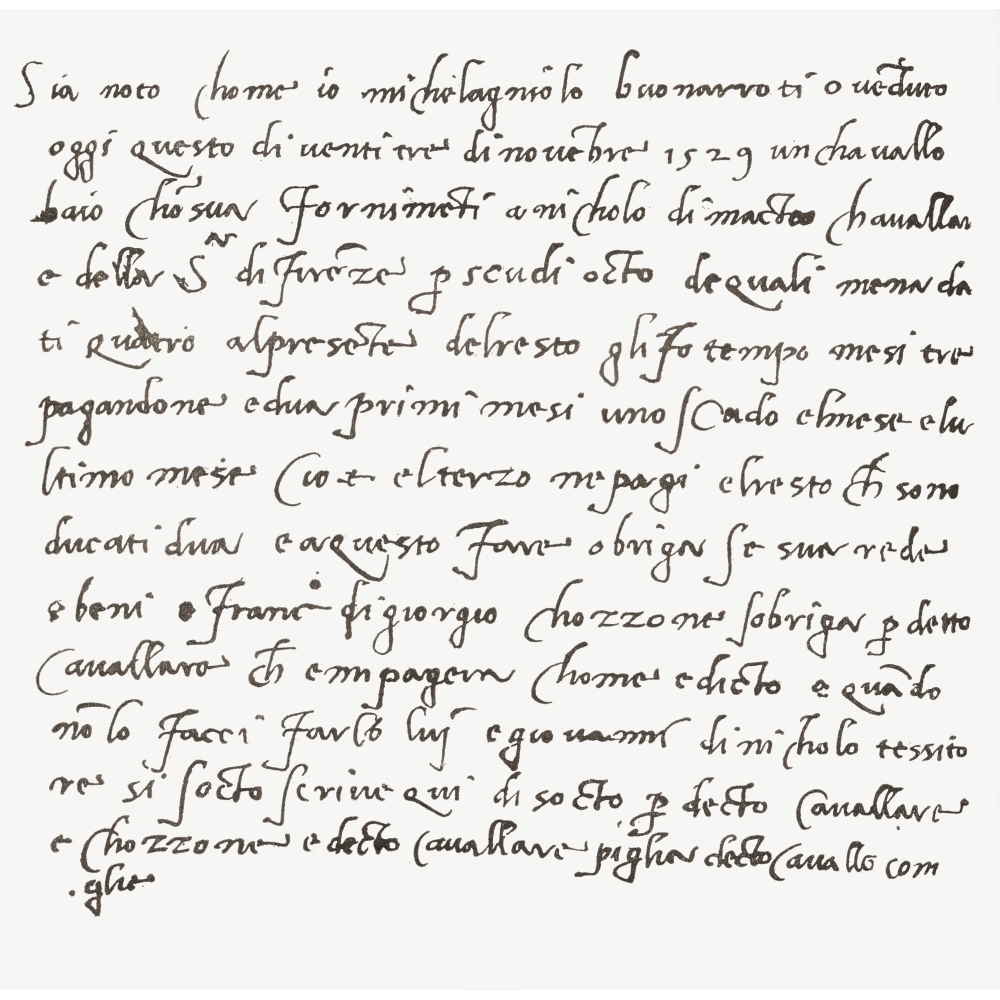 Sia noto chome io michelagniolo buonarroti o vēduto
oggi questo di ventitre di novēbre 1529 un chavallo
baio chō sua fornimēti a nicholo di macteo chavallar
e della Sar di firēze p̱ scudi octo de quali mena da
ti quatro al presēte del resto gli fo tempo mesi tre
pagandone e dua primi mesi uno schudo el mese e lu
ltimo mese cioe el terzo ne pagi el resto ch̄ sono
ducati dua e a questo fare obriga se sua rede
e beni e franc° di giorgio chozzone sobriga p̱ detto
cavallaro ch̄ e mi pagera chome e dicto e quādo
nō lo facci farllo lui e giovanni di nicholo tessito
re si socto scrive qui di socto p̱ decto cavallare
e chozzone e decto cavallare piglia decto cavallo com
.glie